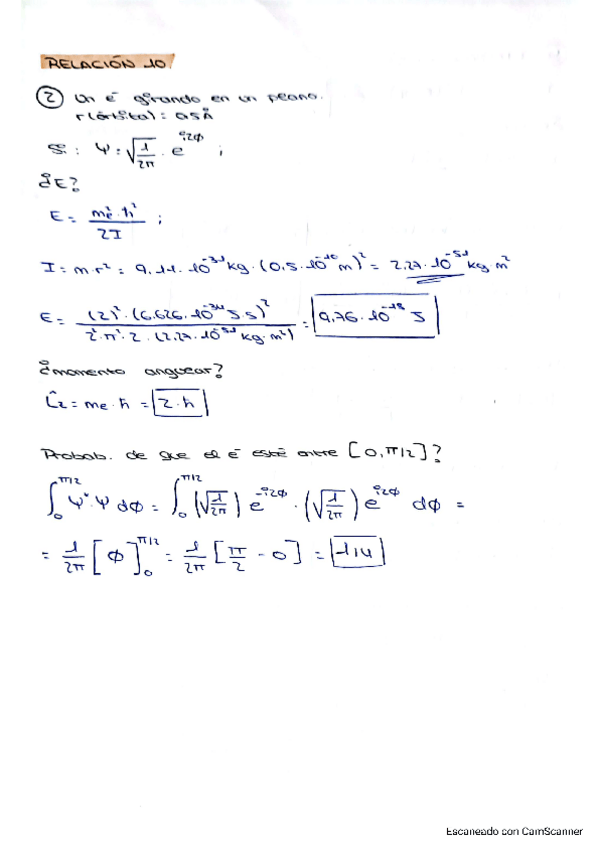 RELACIÓN 10
② Un é girando en un plano.
r(órbita): 0.5Å
Si: Ψ = √(1/2π) · e^(i2φ) ;
¿E?
E = me² · ħ² / 2I ;
I = m·r² = 9.11·10⁻³¹ kg · (0.5·10⁻¹⁰ m)² = 2.27·10⁻⁵¹ kg·m²
E = (2)² · (6.626·10⁻³⁴ J s)² / 2²·π²·2·(2.27·10⁻⁵¹ kg·m²) = 9.76·10⁻¹⁸ J
¿momento angular?
L̂z = me · ħ = 2·ħ
Probab. de que el é esté entre [0, π/2]?
∫₀^(π/2) Ψ*·Ψ dφ = ∫₀^(π/2) (√(1/2π)) e^(-i2φ) · (√(1/2π)) e^(i2φ) dφ =
= 1/2π [φ]₀^(π/2) = 1/2π [π/2 - 0] = 1/4
Escaneado con CamScanner